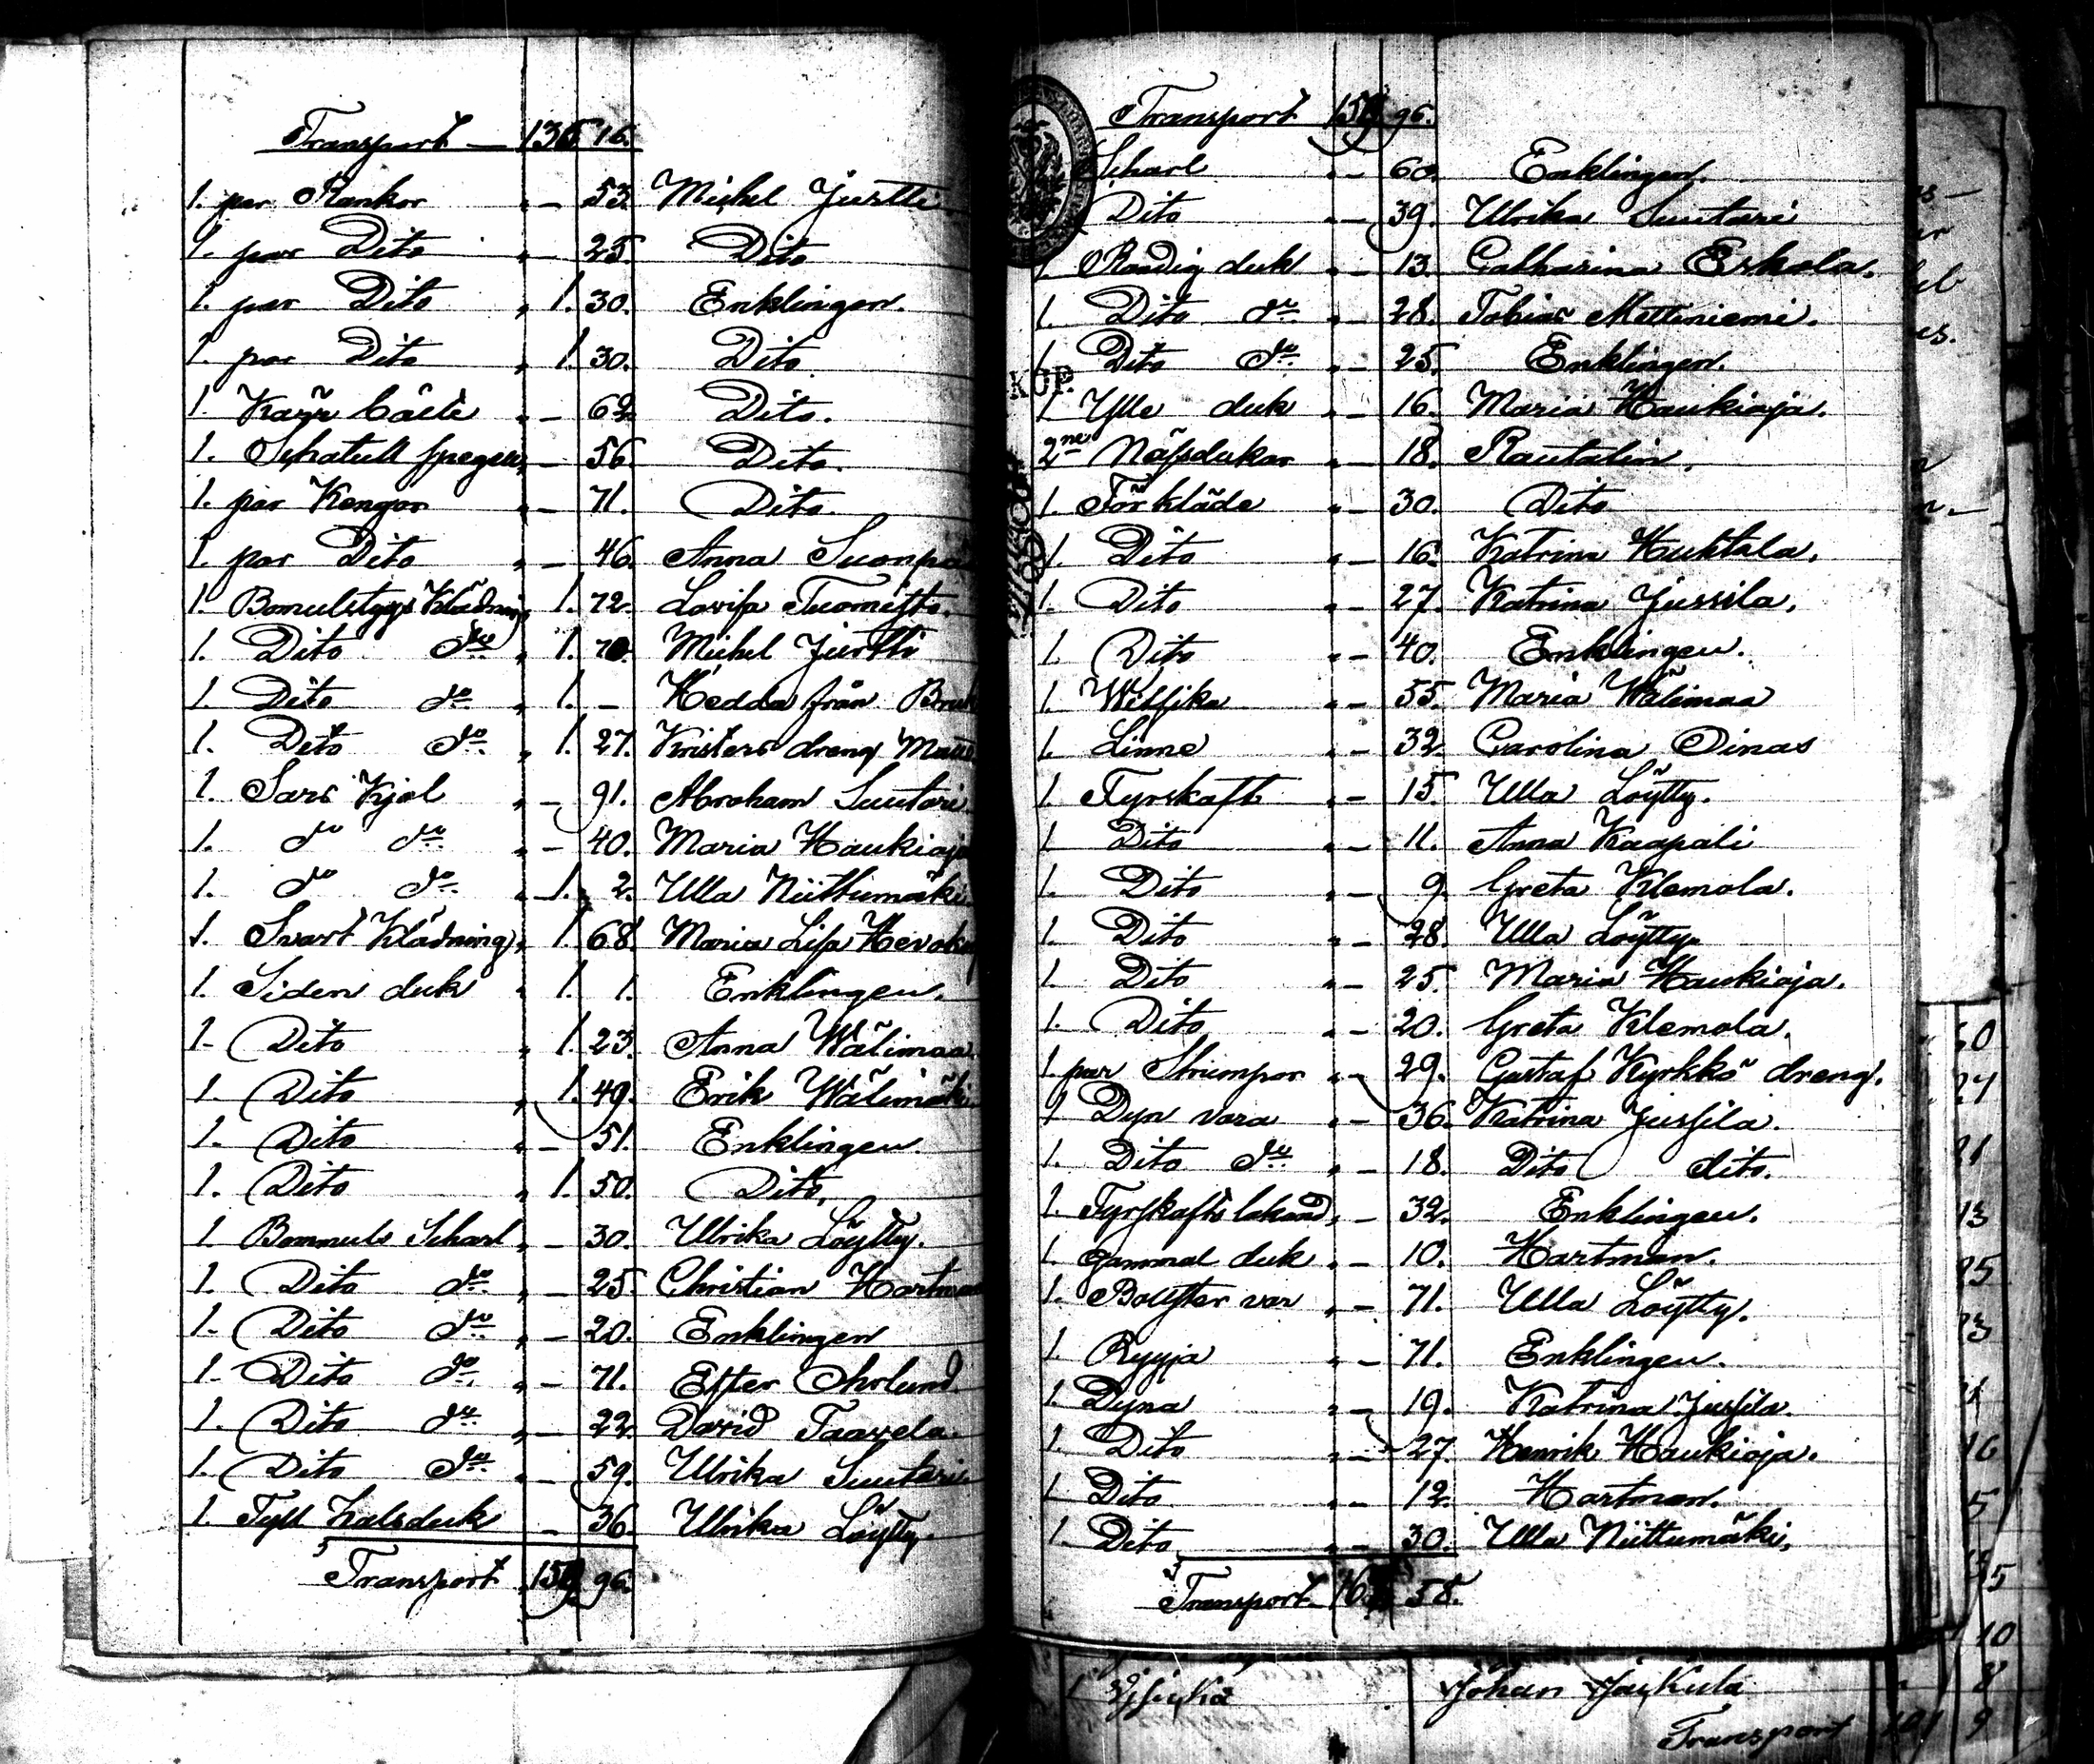 Transport — 135 16.
1. par Kankor " — 53. Michel Jurtti
1. par Dito " — 25. Dito
1. par Dito " 1. 30. Enklingen.
1. par Dito " 1. 30. Dito.
1. " — 62. Dito.
1. Schatull spegeln " — 56. Dito.
1. par Kengor " — 71. Dito.
1. par Dito " — 46. Anna Suonpä
1. Bomulstygs Klädning " 1. 72. Lovisa Tuomisto.
1. Dito do " 1. 70. Michel Jurtti
1. Dito do " 1. — Hedda från Bruk
1. Dito do " 1. 27. Kristers dreng Matts
1. Sars Kjol " — 91. Abraham Suutari
1. do do " — 40. Maria Haukioja
1. do do " 1. 2. Ulla Niittumäki.
1. Svart Klädning " 1. 68. Maria Lisa Hevoko
1. Siden duk " 1. 1. Enklingen.
1. Dito " 1. 23. Anna Wälimaa
1. Dito " 1. 49. Erik Wälimäki
1. Dito " — 51. Enklingen.
1. Dito " 1. 50. Dito,
1. Bommuls Scharl " — 30. Ulrika Löytty.
1. Dito do " — 25. Christian Hartman
1. Dito do " — 20. Enklingen
1. Dito do " — 71. Ester Ohrlund.
1. Dito do " — 22. David Taavela.
1. Dito do " — 59. Ulrika Suutari
1. Tyll halsduk — 36. Ulrika Löytty.
Transport 159 96.
Transport 159 96.
Scharl " — 60. Enklingen.
Dito " — 39. Ulrika Suutari
1 Raadig duk " — 13. Catharina Erkola.
1. Dito do " — 28. Tobias Mettiniemi.
1 Dito do " — 25. Enklingen.
KOP.
1 Ylle duk " — 16. Maria Haukioja.
2ne Näsdukar " — 18. Rautalin.
1. Förkläde " — 30. Dito
1. Dito " — 16. Katrina Huhtala.
1. Dito " — 27. Katrina Jussila.
1. Dito " — 40. Enklingen.
1. " — 55. Maria Wälimaa
1. Linne " — 32. Carolina Oinas
1. Fyrskaft " — 15. Ulla Löytty.
1 Dito " — 11. Anna Kaapali
1. Dito " — 9. Greta Klemola.
1. Dito " — 28. Ulla Löytty.
1. Dito " — 25. Maria Haukioja.
1. Dito " — 20. Greta Klemola.
1. par Strumpor " — 29. Gustaf Kyrkkö dreng.
1 Dyn vara " — 36. Katrina Jussila.
1. Dito do " — 18. Dito dito.
1. Fyrskafts lakand " — 32. Enklingen.
1. Gammal duk " — 10. Hartman.
1. Bolster var " — 71. Ulla Löytty.
1. Ryyja " — 71. Enklingen.
1. Dyna " — 19. Katrina Jussila.
1. Dito " — 27. Henrik Haukioja.
1 Dito " — 12. Hartman.
1. Dito " — 30. Ulla Niittumäki.
Transport 58.
Johan
Transport 101 9